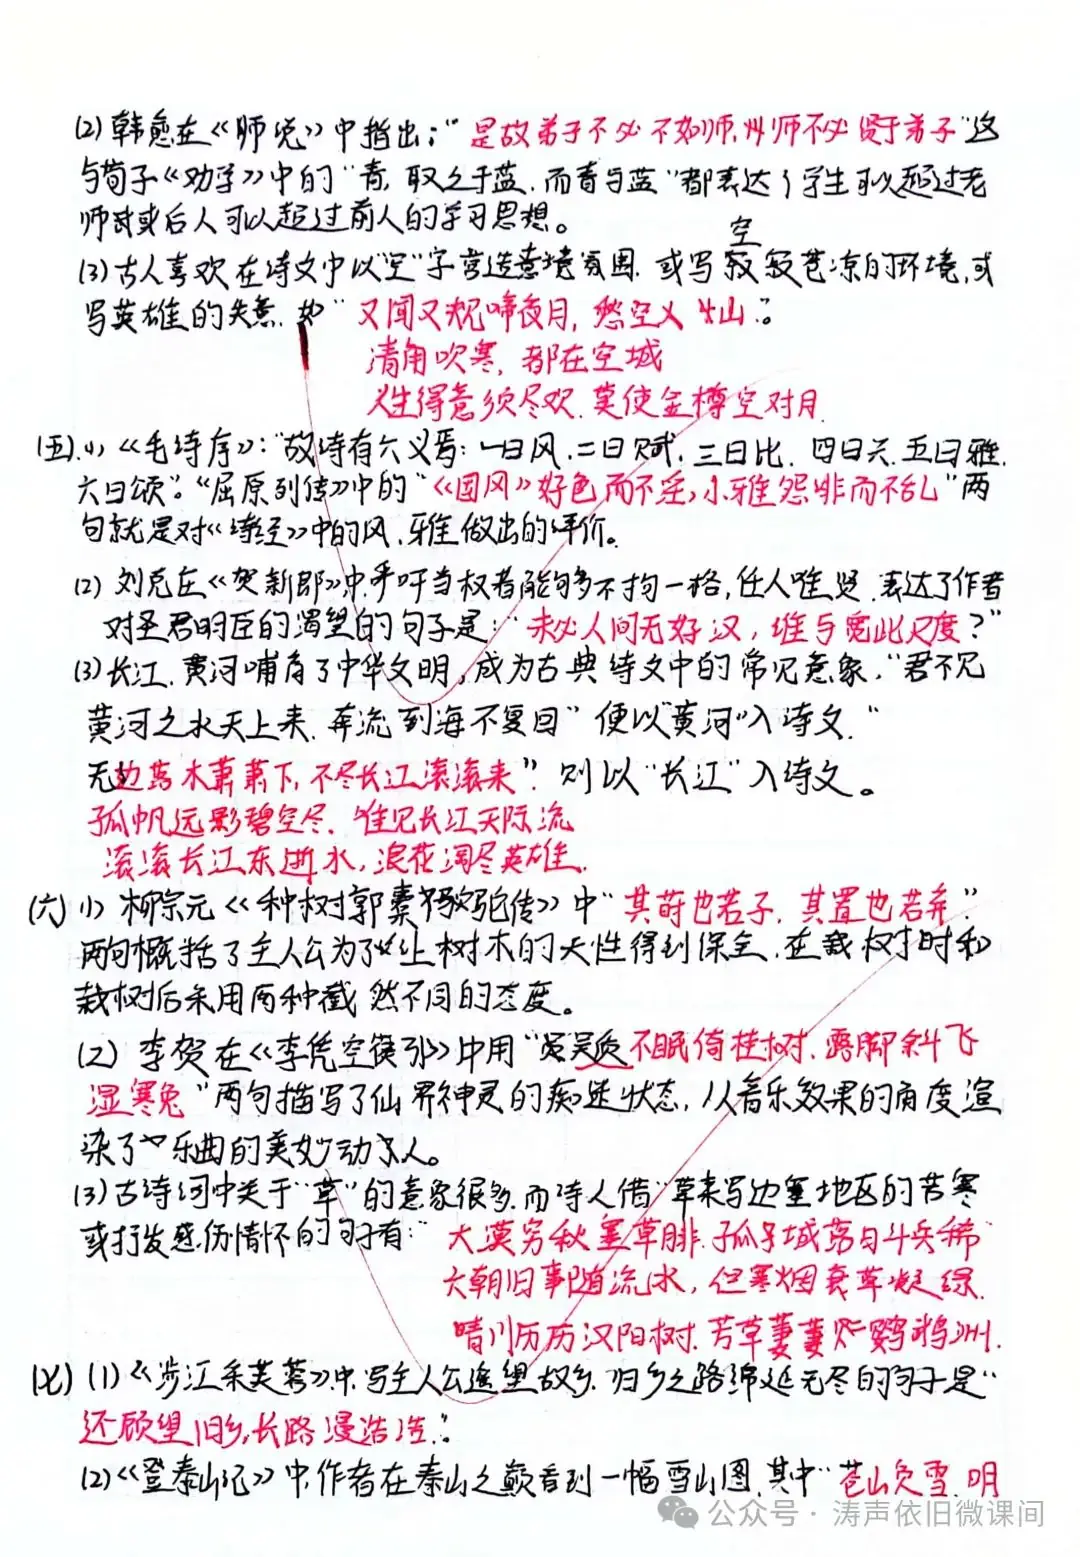 (2)韩愈在《师说》中指出："是故弟子不必不如师,师不必贤于弟子"这
与荀子《劝学》中的"青,取之于蓝,而青于蓝"都表达了学生可以超过老
师或后人可以超过前人的学习思想。
空
(3)古人喜欢在诗文中以"空"字营造意境氛围.或写寂寥苍凉的环境,或
写英雄的失意.如"又闻子规啼夜月,愁空山"。
清角吹寒,都在空城
人生得意须尽欢.莫使金樽空对月
(五).(1)《毛诗序》:"故诗有六义焉:一曰风.二曰赋.三曰比.四曰兴.五曰雅.
六曰颂"."屈原列传》中的"《国风》好色而不淫,小雅怨悱而不乱"两
句就是对《诗经》中的风.雅做出的评价。
(2)刘克庄《贺新郎》中.呼吁当权者能够不拘一格,任人唯贤.表达了作者
对圣君明臣的渴望的句子是:"未必人间无好汉,谁与宽此尺度?"
(3)长江.黄河哺育了中华文明,成为古典诗文中的常见意象,"君不见
黄河之水天上来.奔流到海不复回"便以"黄河"入诗文."
无边落木萧萧下,不尽长江滚滚来".则以"长江"入诗文。
孤帆远影碧空尽.唯见长江天际流
滚滚长江东逝水,浪花淘尽英雄.
(六)(1)柳宗元《种树郭橐驼传》中"其莳也若子.其置也若弃".
两句概括了主人公为了让树木的天性得到保全.在栽树时和
栽树后采用两种截然不同的态度。
(2)李贺在《李凭空篌引》中用"吴质不眠倚桂树.露脚斜飞
湿寒兔"两句描写了仙界神灵的痴迷状态,从音乐效果的角度渲
染了乐曲的美妙动人。
(3)古诗词中关于"草"的意象很多.而诗人借"草来写边塞地区的苦寒
或抒发感伤情怀的句子有:"大漠穷秋塞草腓.孤城落日斗兵稀
六朝旧事随流水,但寒烟衰草凝绿.
晴川历历汉阳树.芳草萋萋鹦鹉洲.
(七)(1)《涉江采芙蓉》中.写主人公遥望故乡.归乡之路绵延无尽的句子是"
还顾望旧乡,长路漫浩浩".
(2)《登泰山记》中.作者在泰山之巅看到一幅雪山图.其中"苍山负雪.明
公众号·涛声依旧微课间